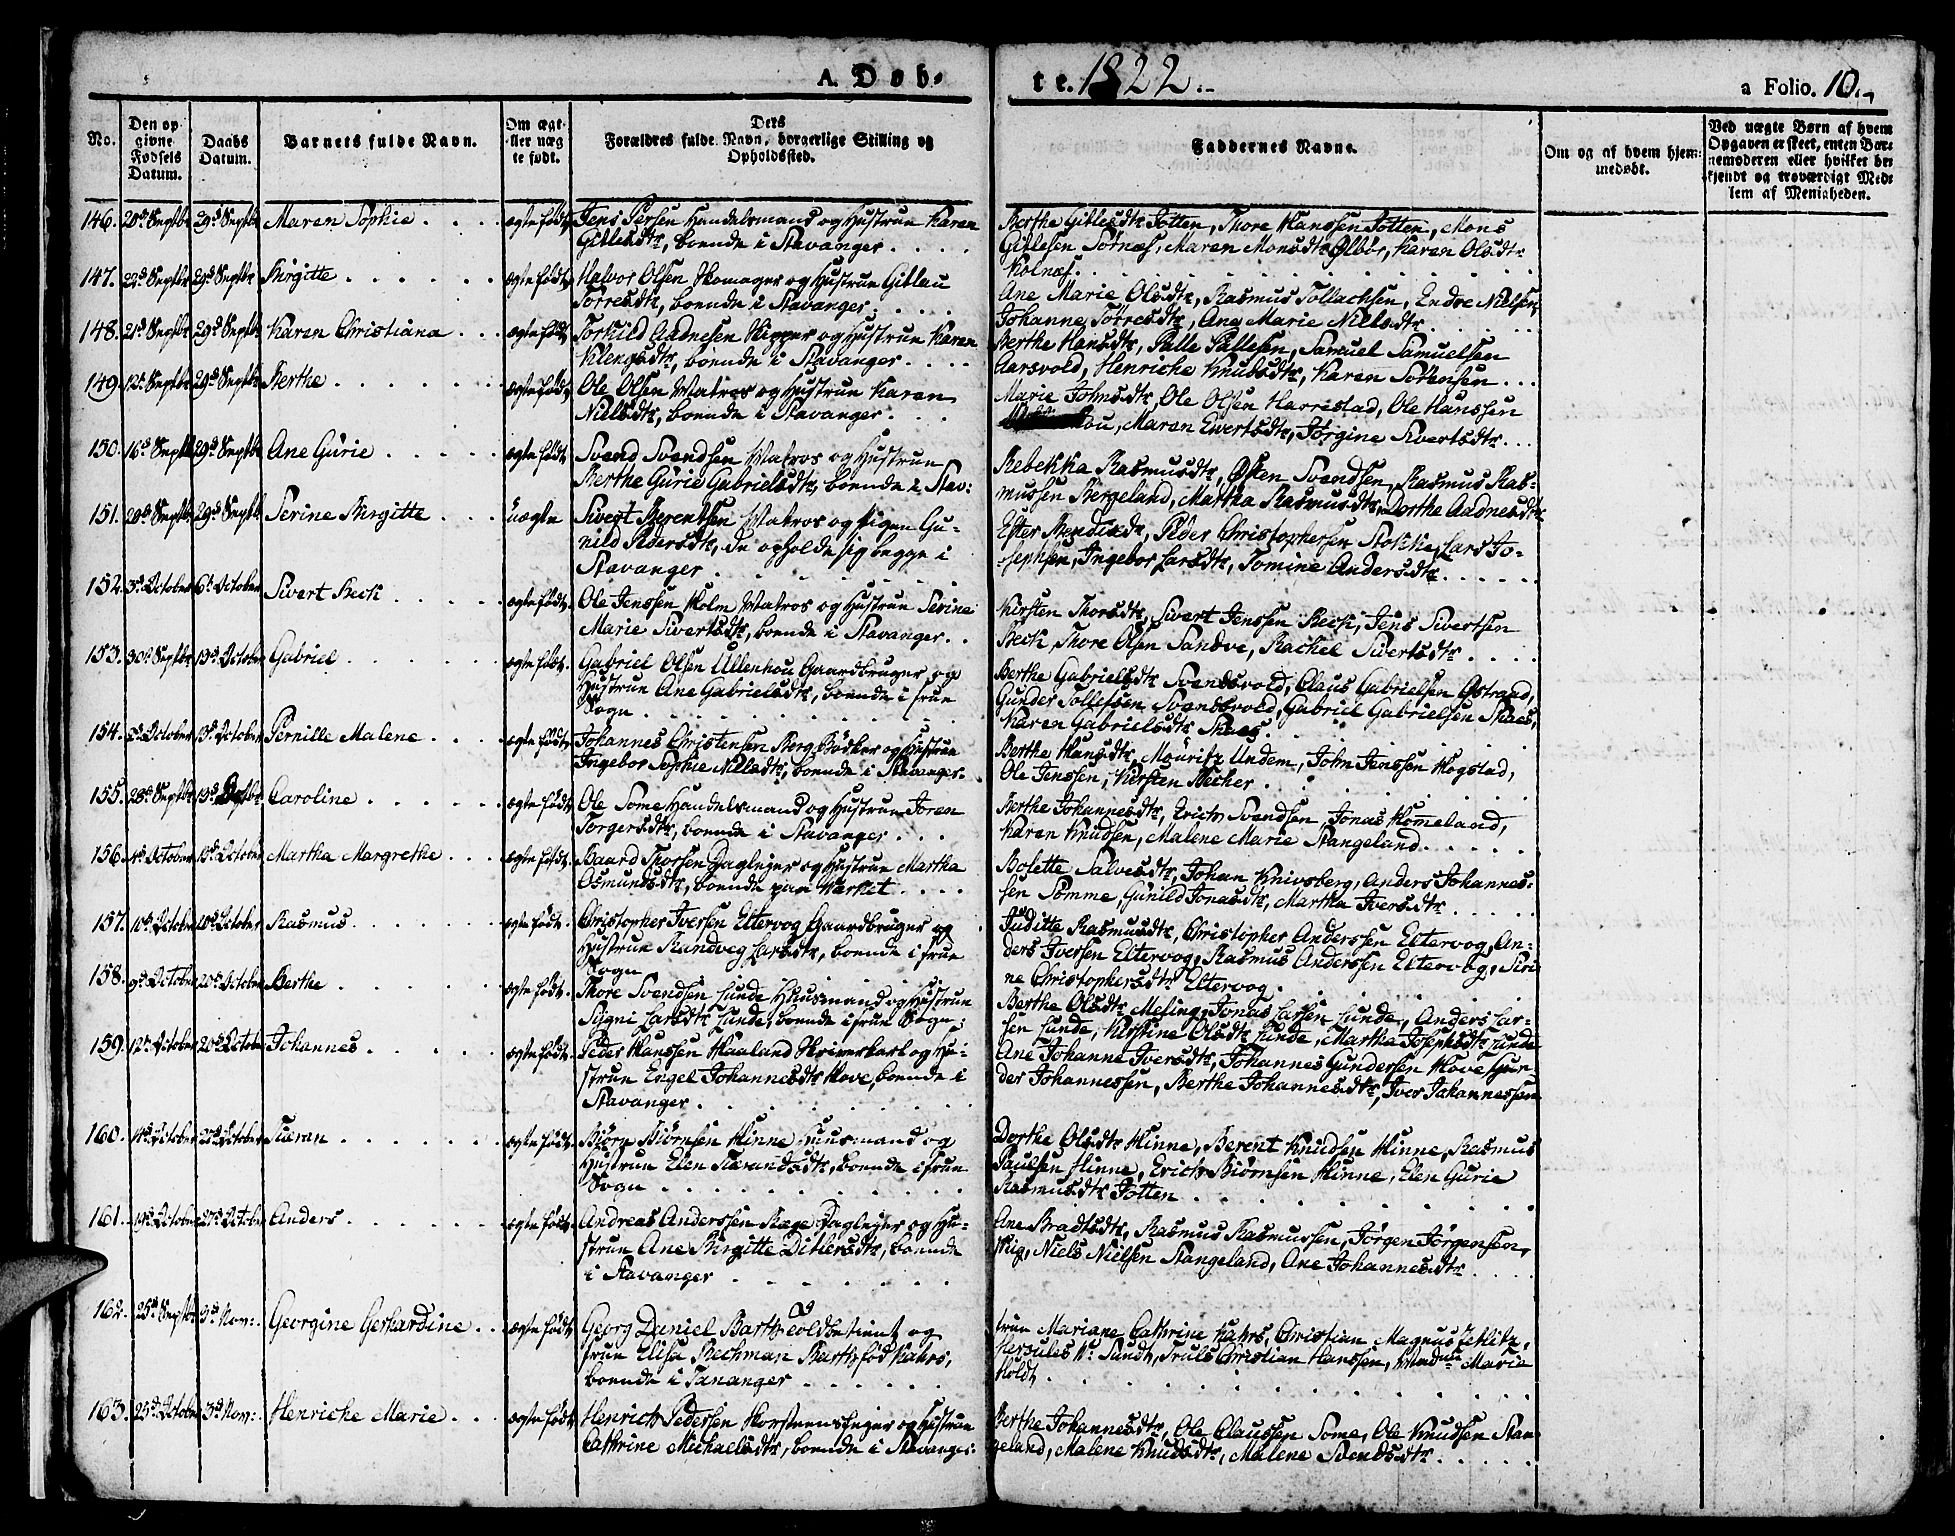 A. Døb-
te. 1822.
a Folio. 10.
No.
Den op
givne
Fødsels
Datum.
Daabs
Datum.
Barnets fulde Navn.
Om ægt-
eller uæg
te født.
Ders
Forældres fulde Navn, borgerlige Stilling og
Opholdssted.
Faddernes Navne.
Om og af hvem hjem-
medøbt.
Ved uægte Børn af hvem
Opgaven er skeet, enten Bar-
nemoderen eller hvilket be-
kjendt og troværdigt Med-
lem af Menigheden.
146. 20de Septbr 29d Septbr Maren Sophie ægte født. Jens Persen Handelsmand og Hustrue Karen
Gitlesdtr, boende i Stavanger
Berthe Gitlesdtr Jotten, Thore Hanssen Jotten, Mons
Gitlesen Sørnæs, Maren Monsdtr Ølbør, Karen Olsdtr
Kolnæs.
147. 29d Septbr Birgitte ægte født. Halvor Olsen Skomager og Hustrue Gitlau
Torresdtr, boende i Stavanger
Ane Marie Olsdtr, Rasmus Tollachsen, Endre Nielsen,
Johanne Torresdtr, Ane Marie Nielsdtr
148. 21d Septbr 29d Septbr Karen Christiana ægte født. Torkild Aadnesen Skipper og Hustrue Karen
Klengsdtr, boende i Stavanger
Berthe Hansdtr, Palle Pallesen, Samuel Samuelsen
Aarsvold, Henriche Knudsdtr, Karen Sörensen
149. 12t Septbr 29d Septbr Berthe ægte født. Ole Olsen Matros og Hustrue Karen
Nielsdtr, boende i Stavanger
Marie Johnsdtr, Ole Olsen Harrestad, Ole Hanssen
Maren Ewertsdtr, Jörgine Sivertsdtr
150. 16d Septbr 29d Septbr Ane Gúrie ægte født. Svend Svendsen Matros og Hustrue
Berthe Gúrie Gabrielsdtr, boende i Stav:
Rebekka Rasmusdtr, Østen Svendsen, Rasmus Ras-
mussen Bergeland, Martha Rasmusdtr, Dorthe Aadnesdtr
151. 20de Septbr 29d Septbr Serine Birgitte uægte Sivert Berentsen Matros og Pigen Gu-
nild Pedersdtr, de opholde sig begge i
Stavanger
Ester Peder Christophersen Stokke, Lars Jo-
sephsen, Ingebor Larsdtr, Tomine Andersdtr
152. 3d October 6t October Sivert Beck ægte født. Ole Jenssen Holm Matros og Hustrue Serine
Marie Sivertsdtr, boende i Stavanger
Kirsten Thorsdtr, Sivert Jenssen Beck, Jens Sivertsen
Beck, Thore Olsen Sandve, Rachel Sivertsdtr
153. 30t Septbr 13d October Gabriel ægte født. Gabriel Olsen Ullenhou Gaardbruger og
Hustrue Ane Gabrielsdtr, boende i frue
Sogn
Berthe Gabrielsdtr Svendsvold, Claus Gabrielsen Østraad,
Gunder Tollefsen Svendsvold, Gabriel Gabrielsen Skaeg,
Karen Gabrielsdtr Skaeg
154. 2d October 13d October Pernille Malene ægte født. Johannes Christensen Berg Bødker og Hustrue
Ingebor Sophie Nielsdtr, boende i Stavanger
Berthe Hansdtr, Mauritz Undem, John Jenssen Hogstad,
Ole Jenssen, Kirsten Becher
155. 28d Septbr Caroline ægte født. Ole Some Handelsmand og Hustrue Joren
Torgersdtr, boende i Stavanger
Berthe Johannesdtr, Erich Svendsen, Jonas Homeland,
Karen Knudsen, Malene Marie Stangeland
156. 4d October 13d October Martha Margrethe ægte født. Baard Thorsen Dagleyer og Hustrue Martha
Osmundsdtr, boende paa Værket
Bolette Salvesdtr, Johan Knivsberg, Anders Johannes-
sen Somme, Gunild Jonasdtr, Martha Iversdtr
157. 10d October October Rasmus ægte født. Christopher Iversen Eltervog Gaardbruger og
Hustrue Randveg Larsdtr, boende i frue
Sogn
Juditte Rasmusdtr, Christopher Anderssen Eltervog, An-
ders Iversen Eltervog, Rasmus Anderssen Eltervog, Siri-
ne Christophersdtr Eltervog
158. 9d October 20de October Berthe ægte født. Thore Svendsen Lunde Huusmand og Hustrue
Sygni Larsdtr Lunde, boende i frue Sogn
Berthe Olsdtr Meling, Jonas Larsen Lunde, Anders Lar-
sen Lunde, Kirstine Olsdtr Lunde, Martha Josephsdtr Lunde
159. 12t October 20de October Johannes ægte født. Peder Hanssen Haaland Skriverkarl og Hu-
strue Engel Johannesdtr Hove, boende i
Stavanger
Ane Johanne Iversdtr, Johannes Gundersen Hove, Gun-
der Johannessen, Berthe Johannesdtr, Iver Johannessen
160. 14d October October Taran ægte født. Biörn Biörnsen Hinne Huusmand og
Hustrue Elen Tarandsdtr, boende i frue
Sogn
Dorthe Olsdtr Hinne, Berent Knudsen Hinne, Rasmus
Paulsen Hinne, Erich Biörnsen Hinne, Elen Gurie
Rasmusdtr Jotten
161. 19d October 27d October Anders ægte født. Andreas Anderssen Ræge Dagleyer og Hu-
strue Ane Birgitte Ditlevsdtr, boende
i Stavanger
Ane Bradtsdtr, Rasmus Rasmussen, Jørgen Jørgensen,
Niels Nielsen Stangeland, Ane Johannesdtr
162. 25d Septbr 3d Nov: Georgine Gerhardine ægte født. Georg Daniel Barth toldbetient og
frue Elisa Bechman Barth fød Kahrs,
boende i Tananger
frue Mariane Cathrine Kahrs, Christian Magnus Zetlitz,
Hercules Sundt, Truls Christian Hanssen, Marie
Holdt
163. 25d October 3d Nov: Henriche Marie ægte født. Henrich Pedersen Skorsteensfeyer og Hustrue
Cathrine Michaelsdtr, boende i Stavanger
Berthe Johannesdtr, Ole Claussen Some, Ole Knudsen Stan-
geland, Malene Knudsdtr, Malene Svendsdtr